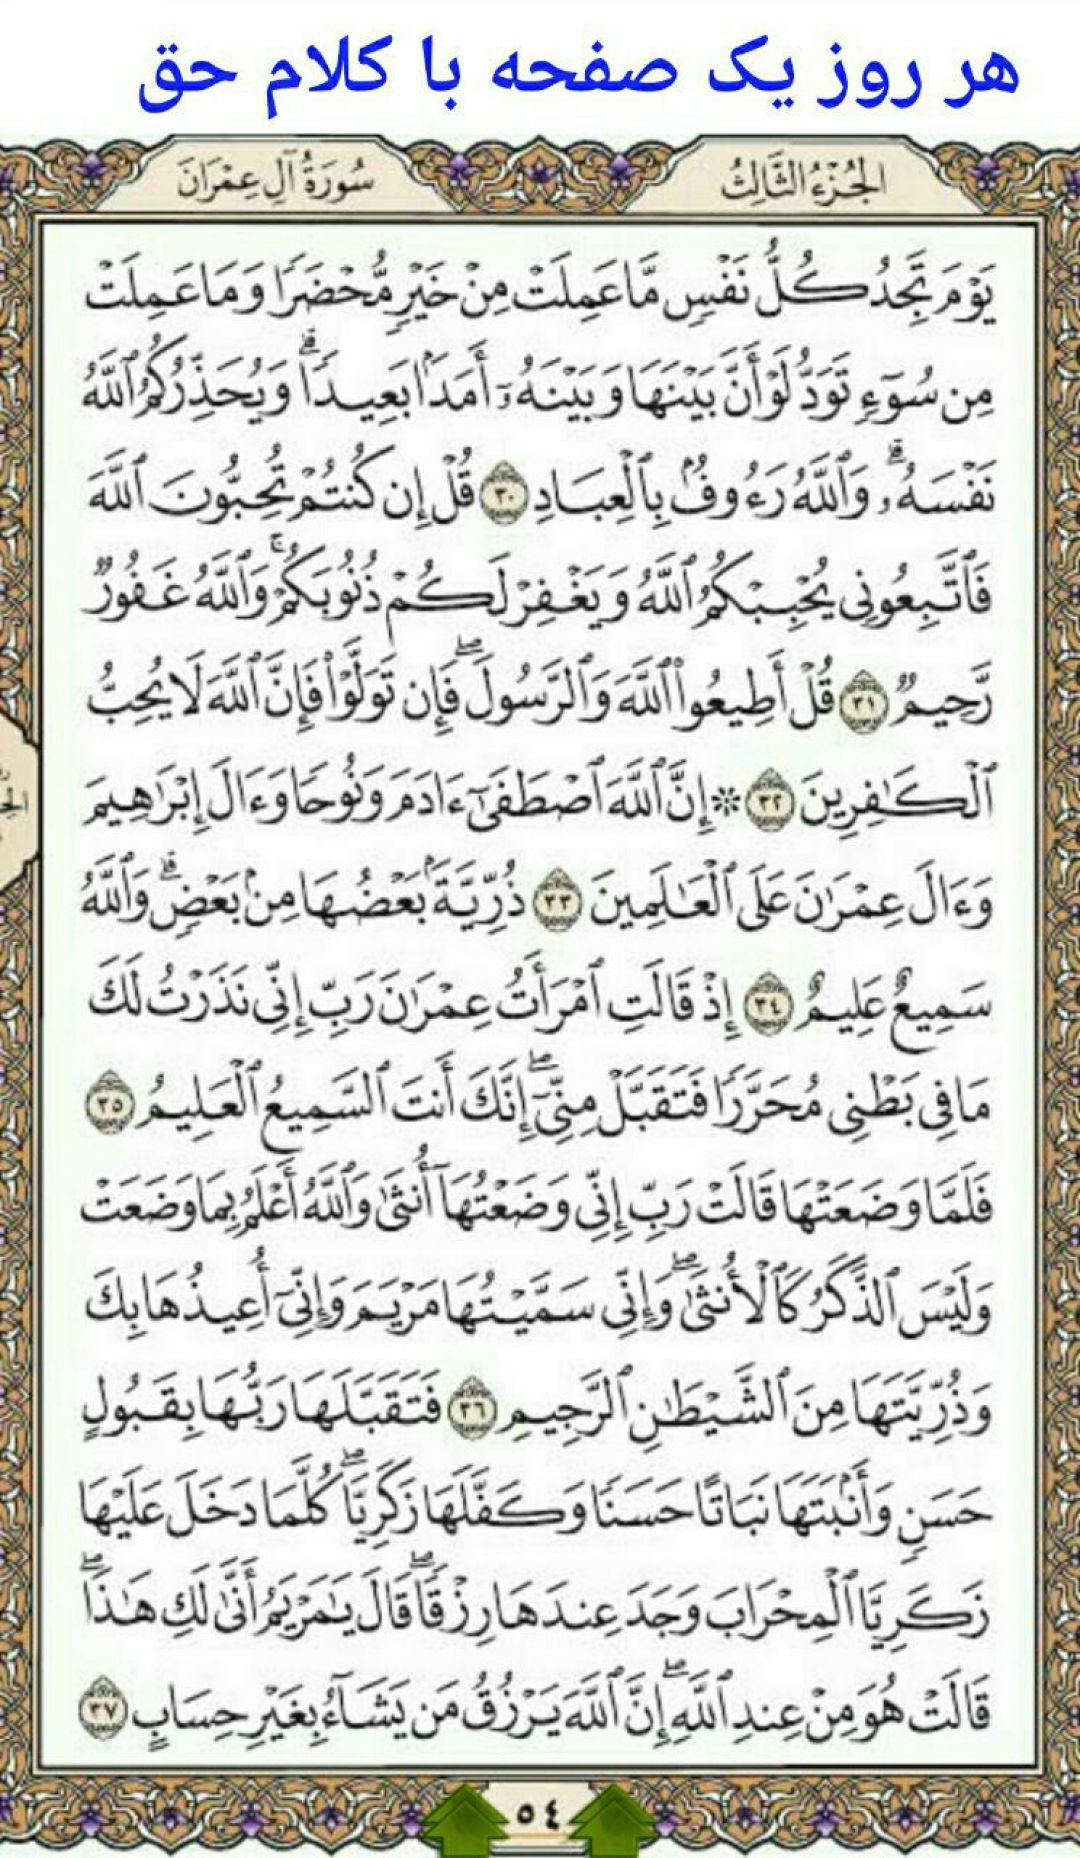 هر روز یک صفحه با کلام حق
الجُزْءُ الثَّالِثُ
سُورَةُ آلِ عِمْرَانَ
يَوْمَ تَجِدُ كُلُّ نَفْسٍ مَّا عَمِلَتْ مِنْ خَيْرٍ مُّحْضَرًا وَمَا عَمِلَتْ
مِن سُوٓءٍ تَوَدُّ لَوْ أَنَّ بَيْنَهَا وَبَيْنَهُۥٓ أَمَدًۢا بَعِيدًا ۗ وَيُحَذِّرُكُمُ ٱللَّهُ
نَفْسَهُۥ ۗ وَٱللَّهُ رَءُوفٌۢ بِٱلْعِبَادِ ٣٠ قُلْ إِن كُنتُمْ تُحِبُّونَ ٱللَّهَ
فَٱتَّبِعُونِى يُحْبِبْكُمُ ٱللَّهُ وَيَغْفِرْ لَكُمْ ذُنُوبَكُمْ ۚ وَٱللَّهُ غَفُورٌ
رَّحِيمٌ ٣١ قُلْ أَطِيعُوا۟ ٱللَّهَ وَٱلرَّسُولَ ۖ فَإِن تَوَلَّوْا۟ فَإِنَّ ٱللَّهَ لَا يُحِبُّ
ٱلْكَٰفِرِينَ ٣٢ ۞ إِنَّ ٱللَّهَ ٱصْطَفَىٰٓ ءَادَمَ وَنُوحًا وَءَالَ إِبْرَٰهِيمَ
وَءَالَ عِمْرَٰنَ عَلَى ٱلْعَٰلَمِينَ ٣٣ ذُرِّيَّةًۢ بَعْضُهَا مِنۢ بَعْضٍ ۗ وَٱللَّهُ
سَمِيعٌ عَلِيمٌ ٣٤ إِذْ قَالَتِ ٱمْرَأَتُ عِمْرَٰنَ رَبِّ إِنِّى نَذَرْتُ لَكَ
مَا فِى بَطْنِى مُحَرَّرًا فَتَقَبَّلْ مِنِّىٓ ۖ إِنَّكَ أَنتَ ٱلسَّمِيعُ ٱلْعَلِيمُ ٣٥
فَلَمَّا وَضَعَتْهَا قَالَتْ رَبِّ إِنِّى وَضَعْتُهَآ أُنثَىٰ وَٱللَّهُ أَعْلَمُ بِمَا وَضَعَتْ
وَلَيْسَ ٱلذَّكَرُ كَٱلْأُنثَىٰ ۖ وَإِنِّى سَمَّيْتُهَا مَرْيَمَ وَإِنِّىٓ أُعِيذُهَا بِكَ
وَذُرِّيَّتَهَا مِنَ ٱلشَّيْطَٰنِ ٱلرَّجِيمِ ٣٦ فَتَقَبَّلَهَا رَبُّهَا بِقَبُولٍ
حَسَنٍ وَأَنۢبَتَهَا نَبَاتًا حَسَنًا وَكَفَّلَهَا زَكَرِيَّا ۖ كُلَّمَا دَخَلَ عَلَيْهَا
زَكَرِيَّا ٱلْمِحْرَابَ وَجَدَ عِندَهَا رِزْقًا ۖ قَالَ يَٰمَرْيَمُ أَنَّىٰ لَكِ هَٰذَا ۖ
قَالَتْ هُوَ مِنْ عِندِ ٱللَّهِ ۖ إِنَّ ٱللَّهَ يَرْزُقُ مَن يَشَآءُ بِغَيْرِ حِسَابٍ ٣٧
٥٤